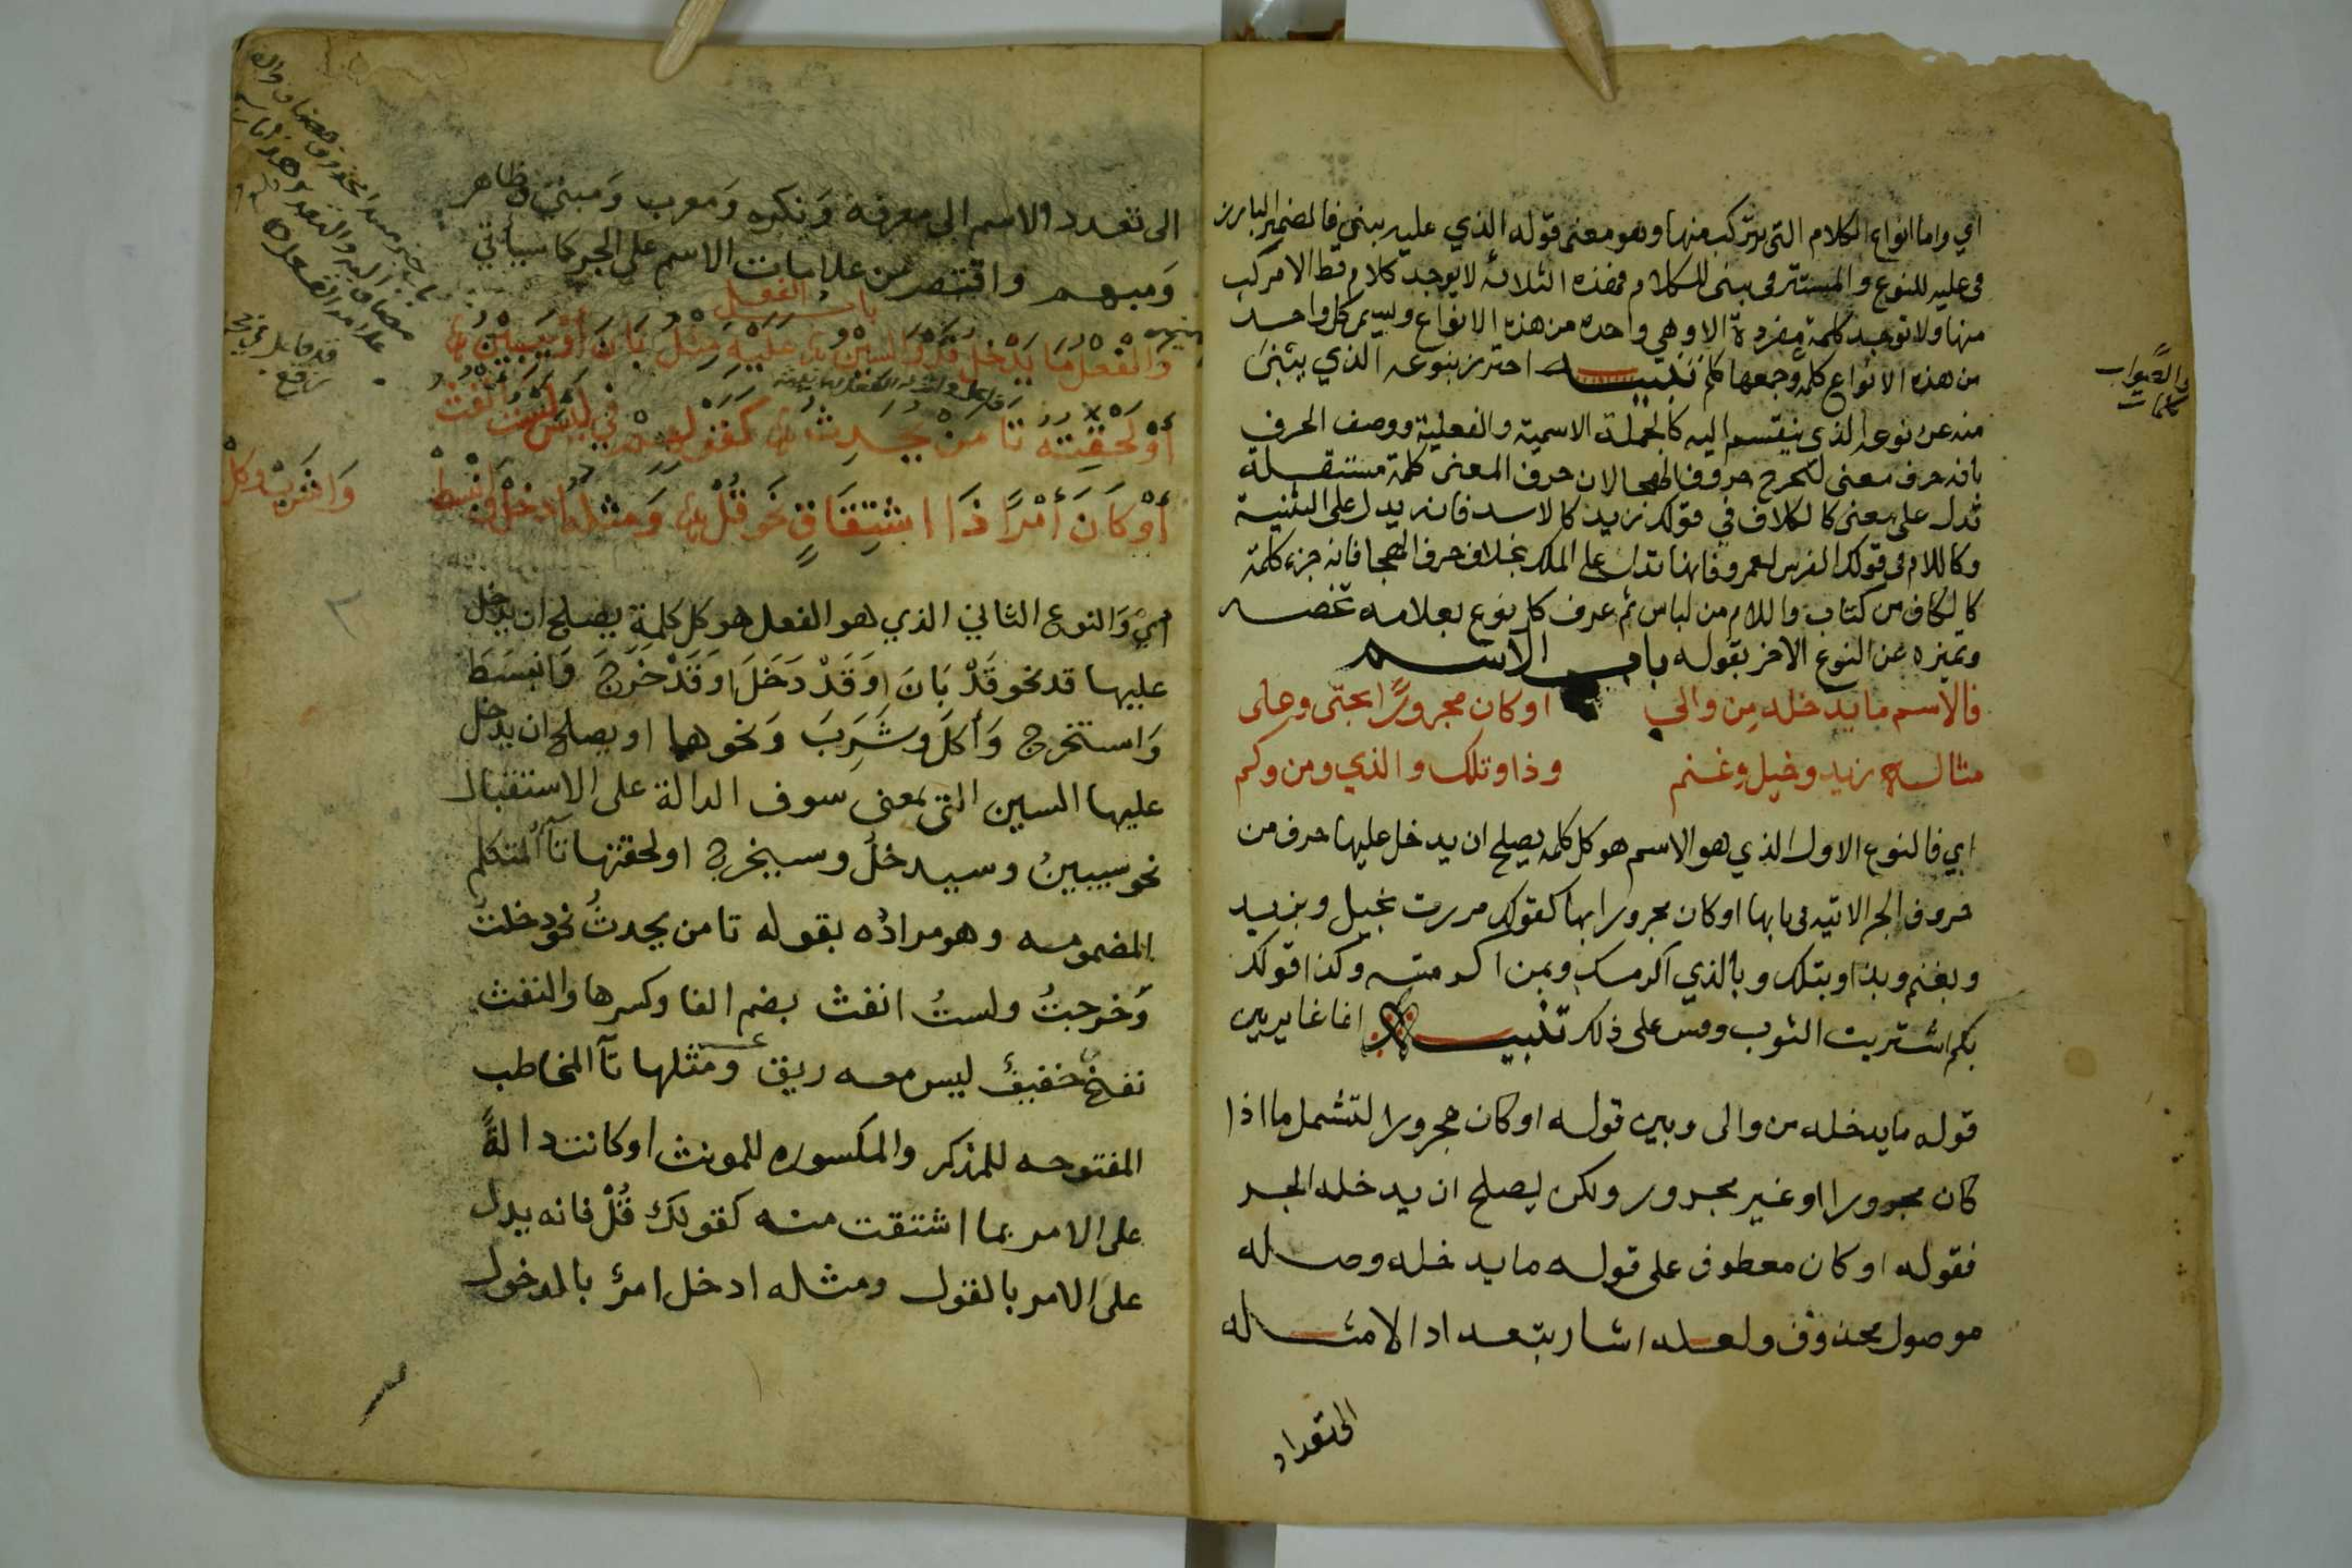 اي واما انواع الكلام التى يتركب منها وهو معنى قوله الذي عليه يبني فالضمير البارز
في عليه للنوع والمستتر في يبنى للكلام فهذه الثلاثه لا يوجد كلام قط الا مركب
منها ولا توجد كلمة مفردة الا وهي واحده من هذه الانواع ويسمى كل واحد
من هذه الانواع كلمه وجمعها كلم تنبيه احترز بنوعه الذي يبنى
منه عن نوعه الذي ينقسم اليه كالجملة الاسمية والفعلية ووصف الحرف
بانه حرف معنى لتخرج حروف الهجا لان حرف المعنى كلمة مستقلة
تدل على معنى كالكاف في قولك زيد كالاسد فانه يدل على التشبيه
وكاللام في قولك الفرس لعمرو فانها تدل على الملك بخلاف حرف الهجا فانه جزء كلمة
كالكاف من كتاب واللام من لباس ثم عرف كل نوع بعلامه تخصه
وتميزه عن النوع الاخر بقوله باب الاسم
فالاسم ما يدخله من والى او كان مجرورًا بحتى وعلى
مثاله زيد وخيل وغنم وذا وتلك والذي ومن وكم
اي فالنوع الاول الذي هو الاسم هو كل كلمه يصلح ان يدخل عليها حرف من
حروف الجر الاتيه في بابها او كان مجرورا بها كقولك مررت بخيل وبزيد
وبغنم وبذا وبتلك وبالذي اكرمك وبمن اكرمته وكذا قولك
بكم اشتريت الثوب وقس على ذلك تنبيه انما غاير بين
قوله ما يدخله من والى وبين قوله او كان مجرورا لتشمل ما اذا
كان مجرورا او غير مجرور ولكن يصلح ان يدخله الجر
فقوله او كان معطوف على قوله ما يدخله وصله
موصول محذوف ولعله اشار بتعداد الامثله
والصواب
كلمات
الى تعدد الاسم الى معرفة ونكره ومعرب ومبني وظاهر
ومبهم واقتصر من علامات الاسم على الجر كما سيأتي
باب الفعل
والفعل ما يدخل قد والسين عليه مثل بان او يبين
او لحقته تا من يحدث كقولهم في ليس لست انفث
او كان أمرًا ذا اشتقاقٍ نحو قل ومثله ادخل وانبسط
واشرب وكل
اي والنوع الثاني الذي هو الفعل هو كل كلمة يصلح ان يدخل
عليها قد نحو قد بان او قد دخل او قد خرج وانبسط
واستخرج وأكل وشرب ونحوها او يصلح ان يدخل
عليها السين التى بمعنى سوف الدالة على الاستقبال
نحو سيبين وسيدخل وسيخرج او لحقتها تآ المتكلم
المضمومه وهو مراده بقوله تا من يحدث نحو دخلت
وخرجت ولست انفث بضم الفا وكسرها والنفث
نفخ خفيف ليس معه ريق ومثلها تآ المخاطب
المفتوحه للمذكر والمكسوره للمونث او كانت دالةً
على الامر بما اشتقت منه كقولك قُلْ فانه يدل
على الامر بالقول ومثله ادخل امرٌ بالدخول